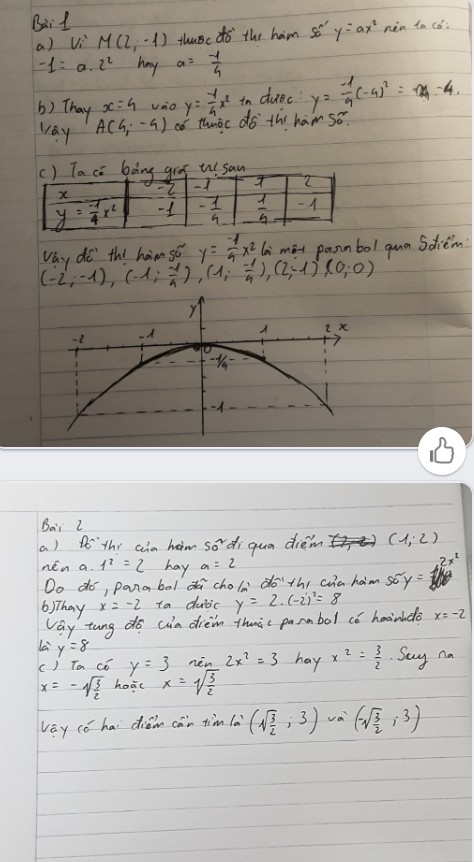 Bài 1
a) Vì M(2; -1) thuộc đồ thị hàm số y = ax² nên ta có:
-1 = a. 2² hay a = -1/4
b) Thay x = 4 vào y = -1/4 x² ta được: y = -1/4 (-4)² = -4.
Vậy A(4; -4) có thuộc đồ thị hàm số.
c) Ta có bảng giá trị sau
x -2 -1 1 2
y = -1/4 x² -1 -1/4 1/4 -1
Vậy đồ thị hàm số y = -1/4 x² là một parabol qua 5 điểm:
(-2; -1), (-1; -1/4), (1; -1/4), (2; -1) (0; 0)
y
-2 -1 1 2 x
0
-1/4
-1
Bài 2
a) Đồ thị của hàm số đi qua điểm (1; 2)
nên a. 1² = 2 hay a = 2
Do đó, parabol đã cho là đồ thị của hàm số y = 2x²
b) Thay x = -2 ta được y = 2. (-2)² = 8
Vậy tung độ của điểm thuộc parabol có hoành độ x = -2
là y = 8
c) Ta có y = 3 nên 2x² = 3 hay x² = 3/2. Suy ra
x = -√3/2 hoặc x = √3/2
Vậy có hai điểm cần tìm là (√3/2; 3) và (-√3/2; 3)